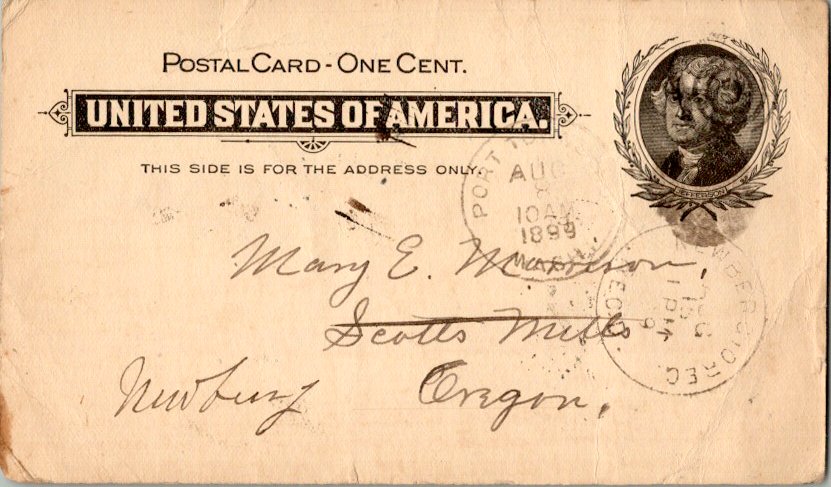 POSTAL CARD - ONE CENT.
UNITED STATES OF AMERICA.
THIS SIDE IS FOR THE ADDRESS ONLY.
JEFFERSON
PORT
AUG
8
10 AM
1899
WASH.
Mary E. Morrison,
Scotts Mills
Newburg Oregon.
NEWBERG OREG.
REC'D.
1 PM